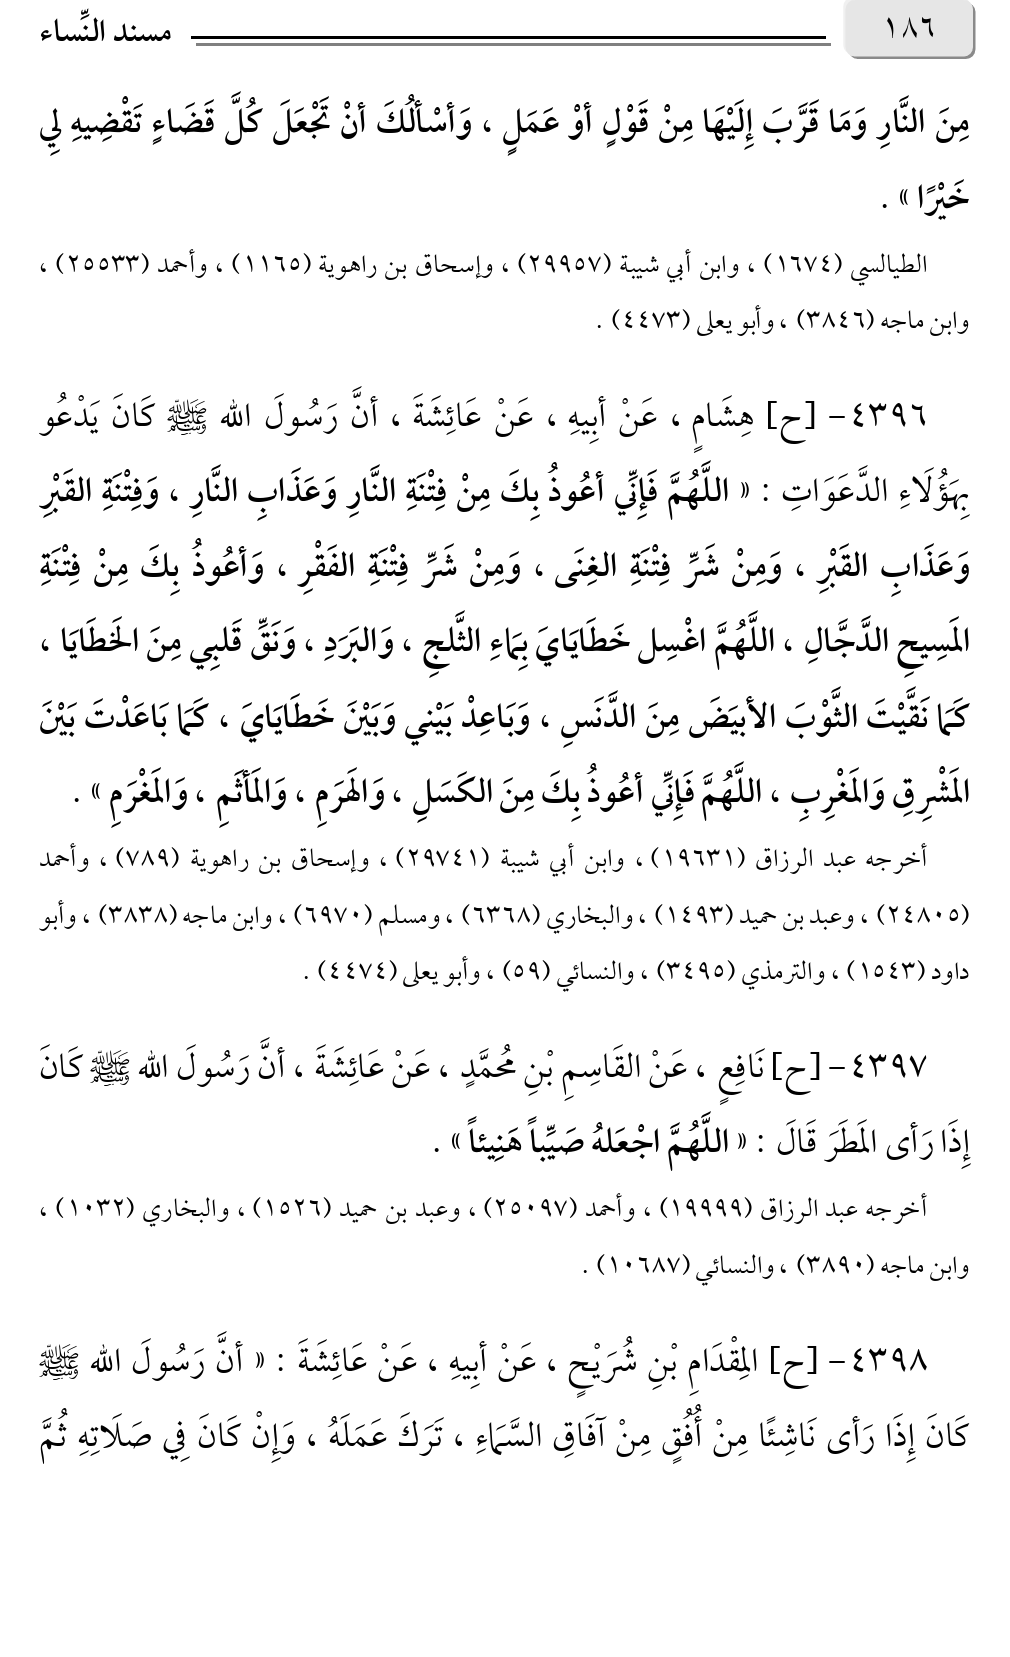 ١٨٦
مسند النِّساء
مِنَ النَّارِ وَمَا قَرَّبَ إِلَيْهَا مِنْ قَوْلٍ أوْ عَمَلٍ ، وَأسْألُكَ أنْ تَجْعَلَ كُلَّ قَضَاءٍ تَقْضِيهِ لِي
خَيْرًا » .
الطيالسي (١٦٧٤) ، وابن أبي شيبة (٢٩٩٥٧) ، وإسحاق بن راهوية (١١٦٥) ، وأحمد (٢٥٥٣٣) ،
وابن ماجه (٣٨٤٦) ، وأبو يعلى (٤٤٧٣) .
٤٣٩٦- [ح] هِشَامٍ ، عَنْ أبِيهِ ، عَنْ عَائِشَةَ ، أنَّ رَسُولَ الله ﷺ كَانَ يَدْعُو
بِهَؤُلَاءِ الدَّعَوَاتِ : « اللَّهُمَّ فَإِنِّي أعُوذُ بِكَ مِنْ فِتْنَةِ النَّارِ وَعَذَابِ النَّارِ ، وَفِتْنَةِ القَبْرِ
وَعَذَابِ القَبْرِ ، وَمِنْ شَرِّ فِتْنَةِ الغِنَى ، وَمِنْ شَرِّ فِتْنَةِ الفَقْرِ ، وَأعُوذُ بِكَ مِنْ فِتْنَةِ
المَسِيحِ الدَّجَّالِ ، اللَّهُمَّ اغْسِل خَطَايَايَ بِمَاءِ الثَّلجِ ، وَالبَرَدِ ، وَنَقِّ قَلبِي مِنَ الخَطَايَا ،
كَمَا نَقَّيْتَ الثَّوْبَ الأبيَضَ مِنَ الدَّنَسِ ، وَبَاعِدْ بَيْنِي وَبَيْنَ خَطَايَايَ ، كَمَا بَاعَدْتَ بَيْنَ
المَشْرِقِ وَالمَغْرِبِ ، اللَّهُمَّ فَإِنِّي أعُوذُ بِكَ مِنَ الكَسَلِ ، وَالهَرَمِ ، وَالمَأثَمِ ، وَالمَغْرَمِ » .
أخرجه عبد الرزاق (١٩٦٣١) ، وابن أبي شيبة (٢٩٧٤١) ، وإسحاق بن راهوية (٧٨٩) ، وأحمد
(٢٤٨٠٥) ، وعبد بن حميد (١٤٩٣) ، والبخاري (٦٣٦٨) ، ومسلم (٦٩٧٠) ، وابن ماجه (٣٨٣٨) ، وأبو
داود (١٥٤٣) ، والترمذي (٣٤٩٥) ، والنسائي (٥٩) ، وأبو يعلى (٤٤٧٤) .
٤٣٩٧- [ح] نَافِعٍ ، عَنْ القَاسِمِ بْنِ مُحَمَّدٍ ، عَنْ عَائِشَةَ ، أنَّ رَسُولَ الله ﷺ كَانَ
إِذَا رَأى المَطَرَ قَالَ : « اللَّهُمَّ اجْعَلهُ صَيِّباً هَنِيئاً » .
أخرجه عبد الرزاق (١٩٩٩٩) ، وأحمد (٢٥٠٩٧) ، وعبد بن حميد (١٥٢٦) ، والبخاري (١٠٣٢) ،
وابن ماجه (٣٨٩٠) ، والنسائي (١٠٦٨٧) .
٤٣٩٨- [ح] المِقْدَامِ بْنِ شُرَيْحٍ ، عَنْ أبِيهِ ، عَنْ عَائِشَةَ : « أنَّ رَسُولَ الله ﷺ
كَانَ إِذَا رَأى نَاشِئًا مِنْ أُفُقٍ مِنْ آفَاقِ السَّمَاءِ ، تَرَكَ عَمَلَهُ ، وَإِنْ كَانَ فِي صَلَاتِهِ ثُمَّ